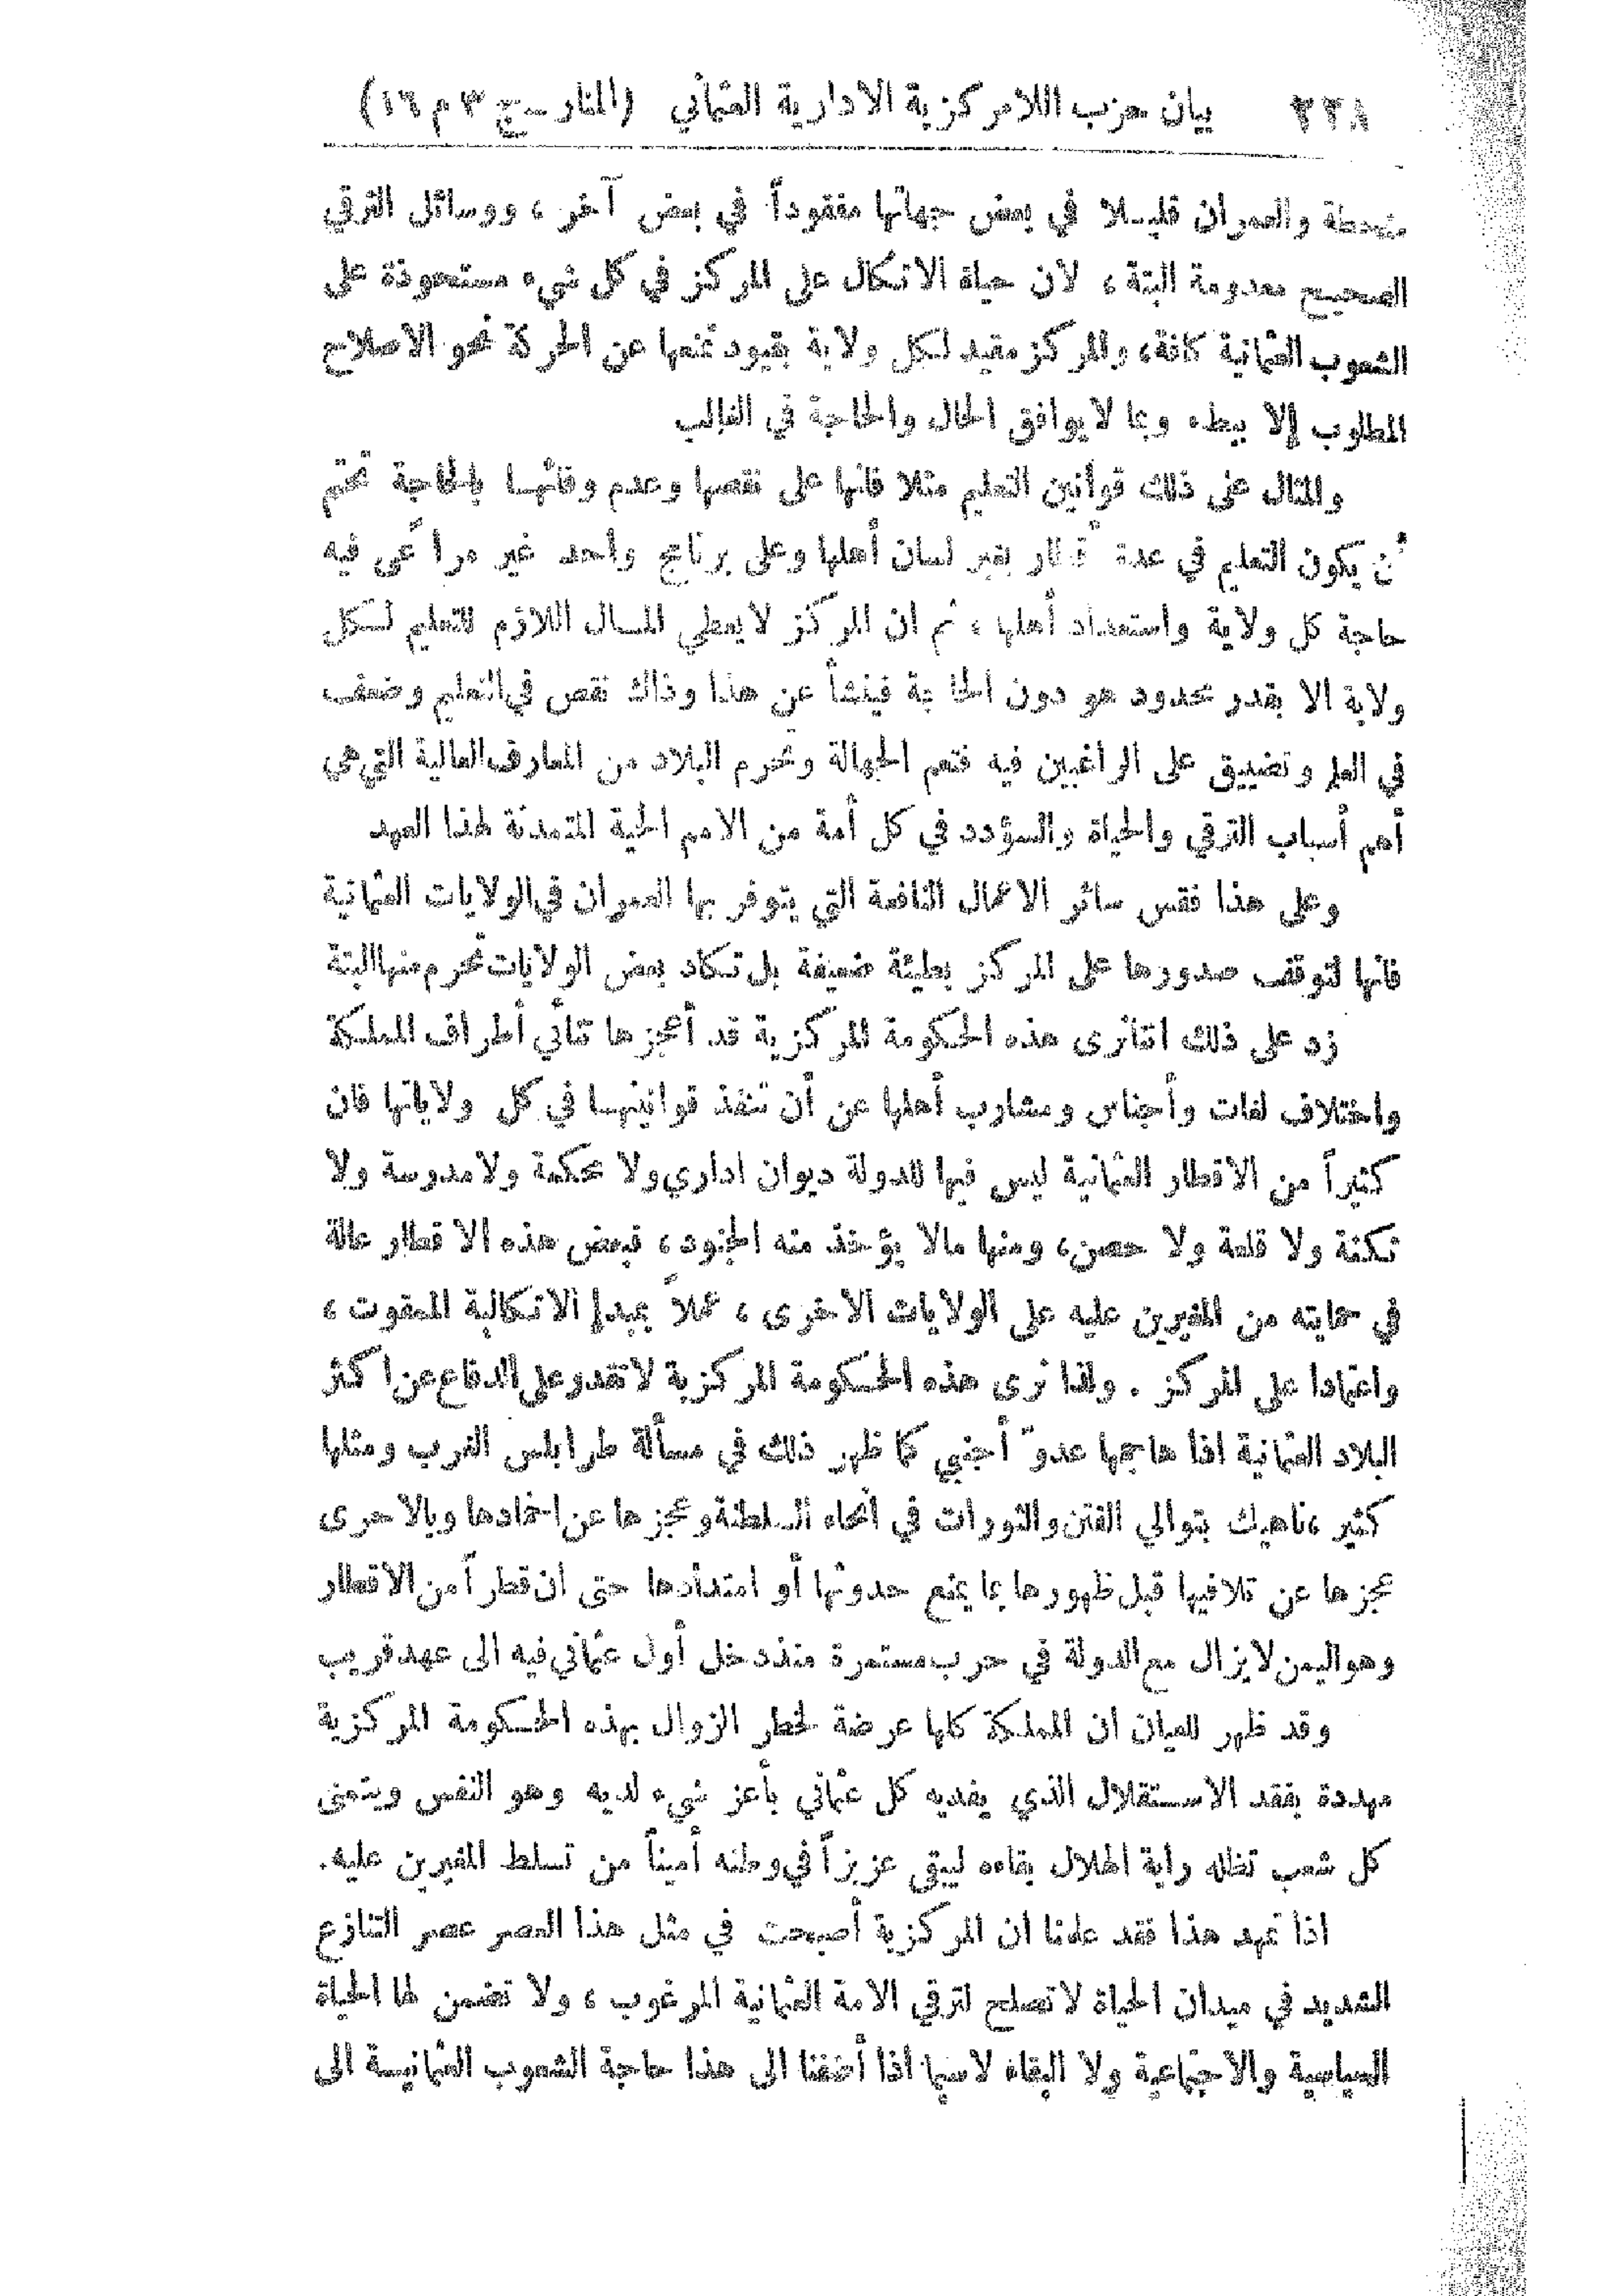 ٢٢٨ بيان حزب اللامركزية الادارية العثماني (المنار ـ ج ٣ م ١٦)
منحطة والعمران قليلا في بعض جهاتها مفقوداً في بعض آخر ، ووسائل الترقي
الصحيح معدومة البتة ، لان حياة الاتكال على المركز في كل شيء مستحوذة على
الشعوب العثمانية كافة، والمركز مقيد لكل ولاية بقيود تمنعها عن الحركة نحو الاصلاح
المطلوب إلا ببطء وبما لا يوافق الحال والحاجة في الغالب
والمثال على ذلك قوانين التعليم مثلا فانها على نقصها وعدم وفائها بالحاجة تحتم
أن يكون التعليم في عدة أقطار بغير لسان أهلها وعلى برنامج واحد غير مراعى فيه
حاجة كل ولاية واستعداد أهلها ، ثم ان المركز لا يعطي المال اللازم للتعليم لكل
ولاية الا بقدر محدود هو دون الحاجة فينشأ عن هذا وذاك نقص في التعليم وضعف
في العلم وتضييق على الراغبين فيه فتعم الجهالة وتحرم البلاد من المعارف العالية التي هي
أهم أسباب الترقي والحياة والسؤدد في كل أمة من الامم الحية المتمدنة لهذا العهد
وعلى هذا فقس سائر الاعمال النافعة التي يتوفر بها العمران في الولايات العثمانية
فانها لتوقف صدورها على المركز بطيئة ضعيفة بل تكاد بعض الولايات تحرم منها البتة
زد على ذلك اننا نرى هذه الحكومة المركزية قد أعجزها تنائي أطراف المملكة
واختلاف لغات وأجناس ومشارب أهلها عن أن تنفذ قوانينها في كل ولاياتها فان
كثيراً من الاقطار العثمانية ليس فيها للدولة ديوان اداري ولا محكمة ولا مدرسة ولا
ثكنة ولا قلعة ولا حصن، ومنها مالا يؤخذ منه الجنود، فبعض هذه الاقطار عالة
في حمايته من المغيرين عليه على الولايات الاخرى ، عملاً بمبدإ الاتكالية الممقوت ،
واعتمادا على المركز . ولذا نرى هذه الحكومة المركزية لا تقدر على الدفاع عن اكثر
البلاد العثمانية اذا هاجمها عدوّ أجنبي كما ظهر ذلك في مسألة طرابلس الغرب ومثلها
كثير ، ناهيك بتوالي الفتن والثورات في أنحاء السلطنة وعجزها عن اخمادها وبالاحرى
عجزها عن تلافيها قبل ظهورها بما يمنع حدوثها أو امتدادها حتى ان قطراً من الاقطار
وهو اليمن لا يزال مع الدولة في حرب مستمرة منذ دخل أول عثماني فيه الى عهد قريب
وقد ظهر للعيان ان المملكة كلها عرضة لخطر الزوال بهذه الحكومة المركزية
مهددة بفقد الاستقلال الذي يفديه كل عثماني بأعز شيء لديه وهو النفس ويتمنى
كل شعب تظله راية الهلال بقاءه ليبقى عزيزاً في وطنه أميناً من تسلط المغيرين عليه.
اذا تمهد هذا فقد علمنا ان المركزية أصبحت في مثل هذا العصر عصر التنازع
الشديد في ميدان الحياة لا تصلح لترقي الامة العثمانية المرغوب ، ولا تضمن لها الحياة
السياسية والاجتماعية ولا البقاء لاسيما اذا أضفنا الى هذا حاجة الشعوب العثمانية الى